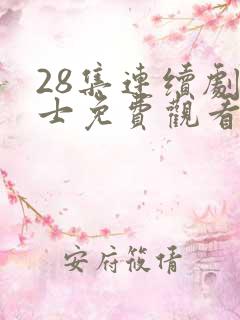 28集連續劇
士免費觀看
安府筱倩